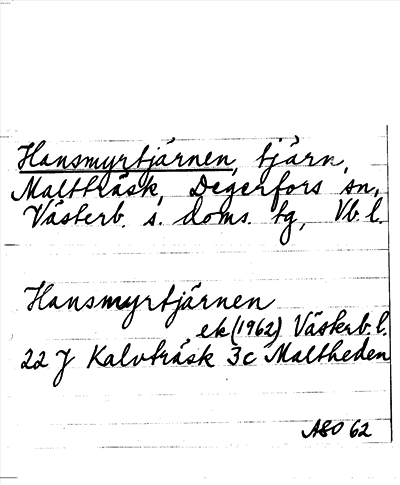 Hansmyrtjärnen, tjärn,
Maltträsk, Degerfors sn,
Västerb. s. doms. tg, Vb. l.
Hansmyrtjärnen
ek (1962) Västerb. l.
22 J Kalvträsk 3c Maltheden
ASO 62